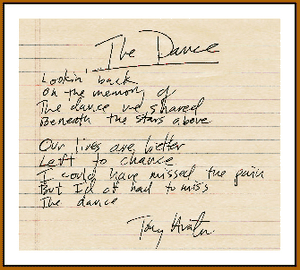 The Dance
Lookin' back
On the memory of
The dance we shared
Beneath the stars above
Our lives are better
Left to chance
I could have missed the pain
But I'd of had to miss
The dance
Tony Arata